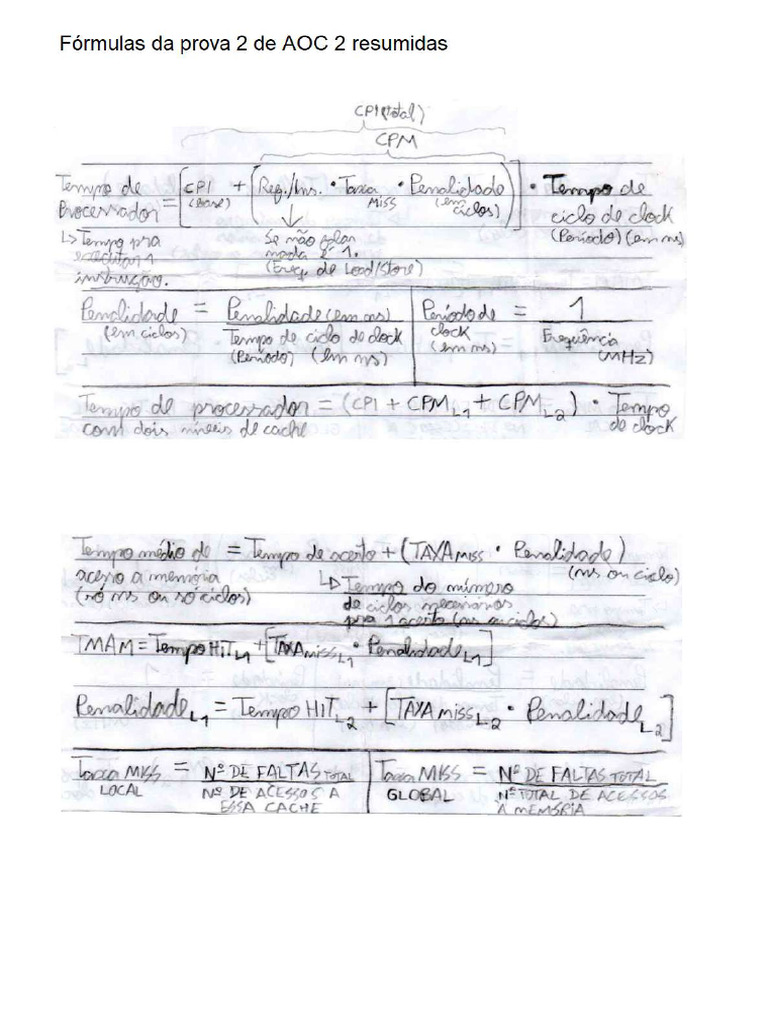 Fórmulas da prova 2 de AOC 2 resumidas
CPI(total)
CPM
Tempo de Processador = [CPI (Base) + [Req./Ins. • Taxa MISS • Penalidade (em ciclos)]] • Tempo de ciclo de clock (Período) (em ns)
↳ Tempo pra executar 1 instrução.
Se não falar nada é 1.
(Freq. de Load/Store)
Penalidade (em ciclos) = Penalidade (em ns) / Tempo de ciclo de clock (Período) (em ns)
Período de clock (em ns) = 1 / Frequência (MHz)
Tempo de processador com dois níveis de cache = (CPI + CPM L1 + CPM L2) • Tempo de clock
Tempo médio de acesso a memória = Tempo de acerto + (TAXA MISS • Penalidade)
(só ns ou só ciclos)
(ns ou ciclo)
↳ Tempo do número
de ciclos necessários
pra 1 acerto (ns ou ciclos)
TMAM = Tempo HiT L1 + [TAXA miss L1 • Penalidade L1]
Penalidade L1 = Tempo HIT L2 + [TAXA miss L2 • Penalidade L2]
Taxa MISS LOCAL = Nº DE FALTAS TOTAL / Nº DE ACESSOS A ESSA CACHE
Taxa MISS GLOBAL = Nº DE FALTAS TOTAL / Nº TOTAL DE ACESSOS À MEMÓRIA